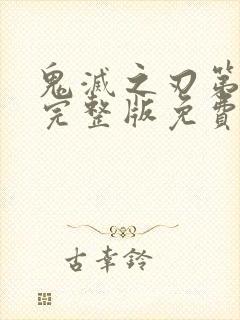 鬼滅之刃第
完整版免費
古幸鈴